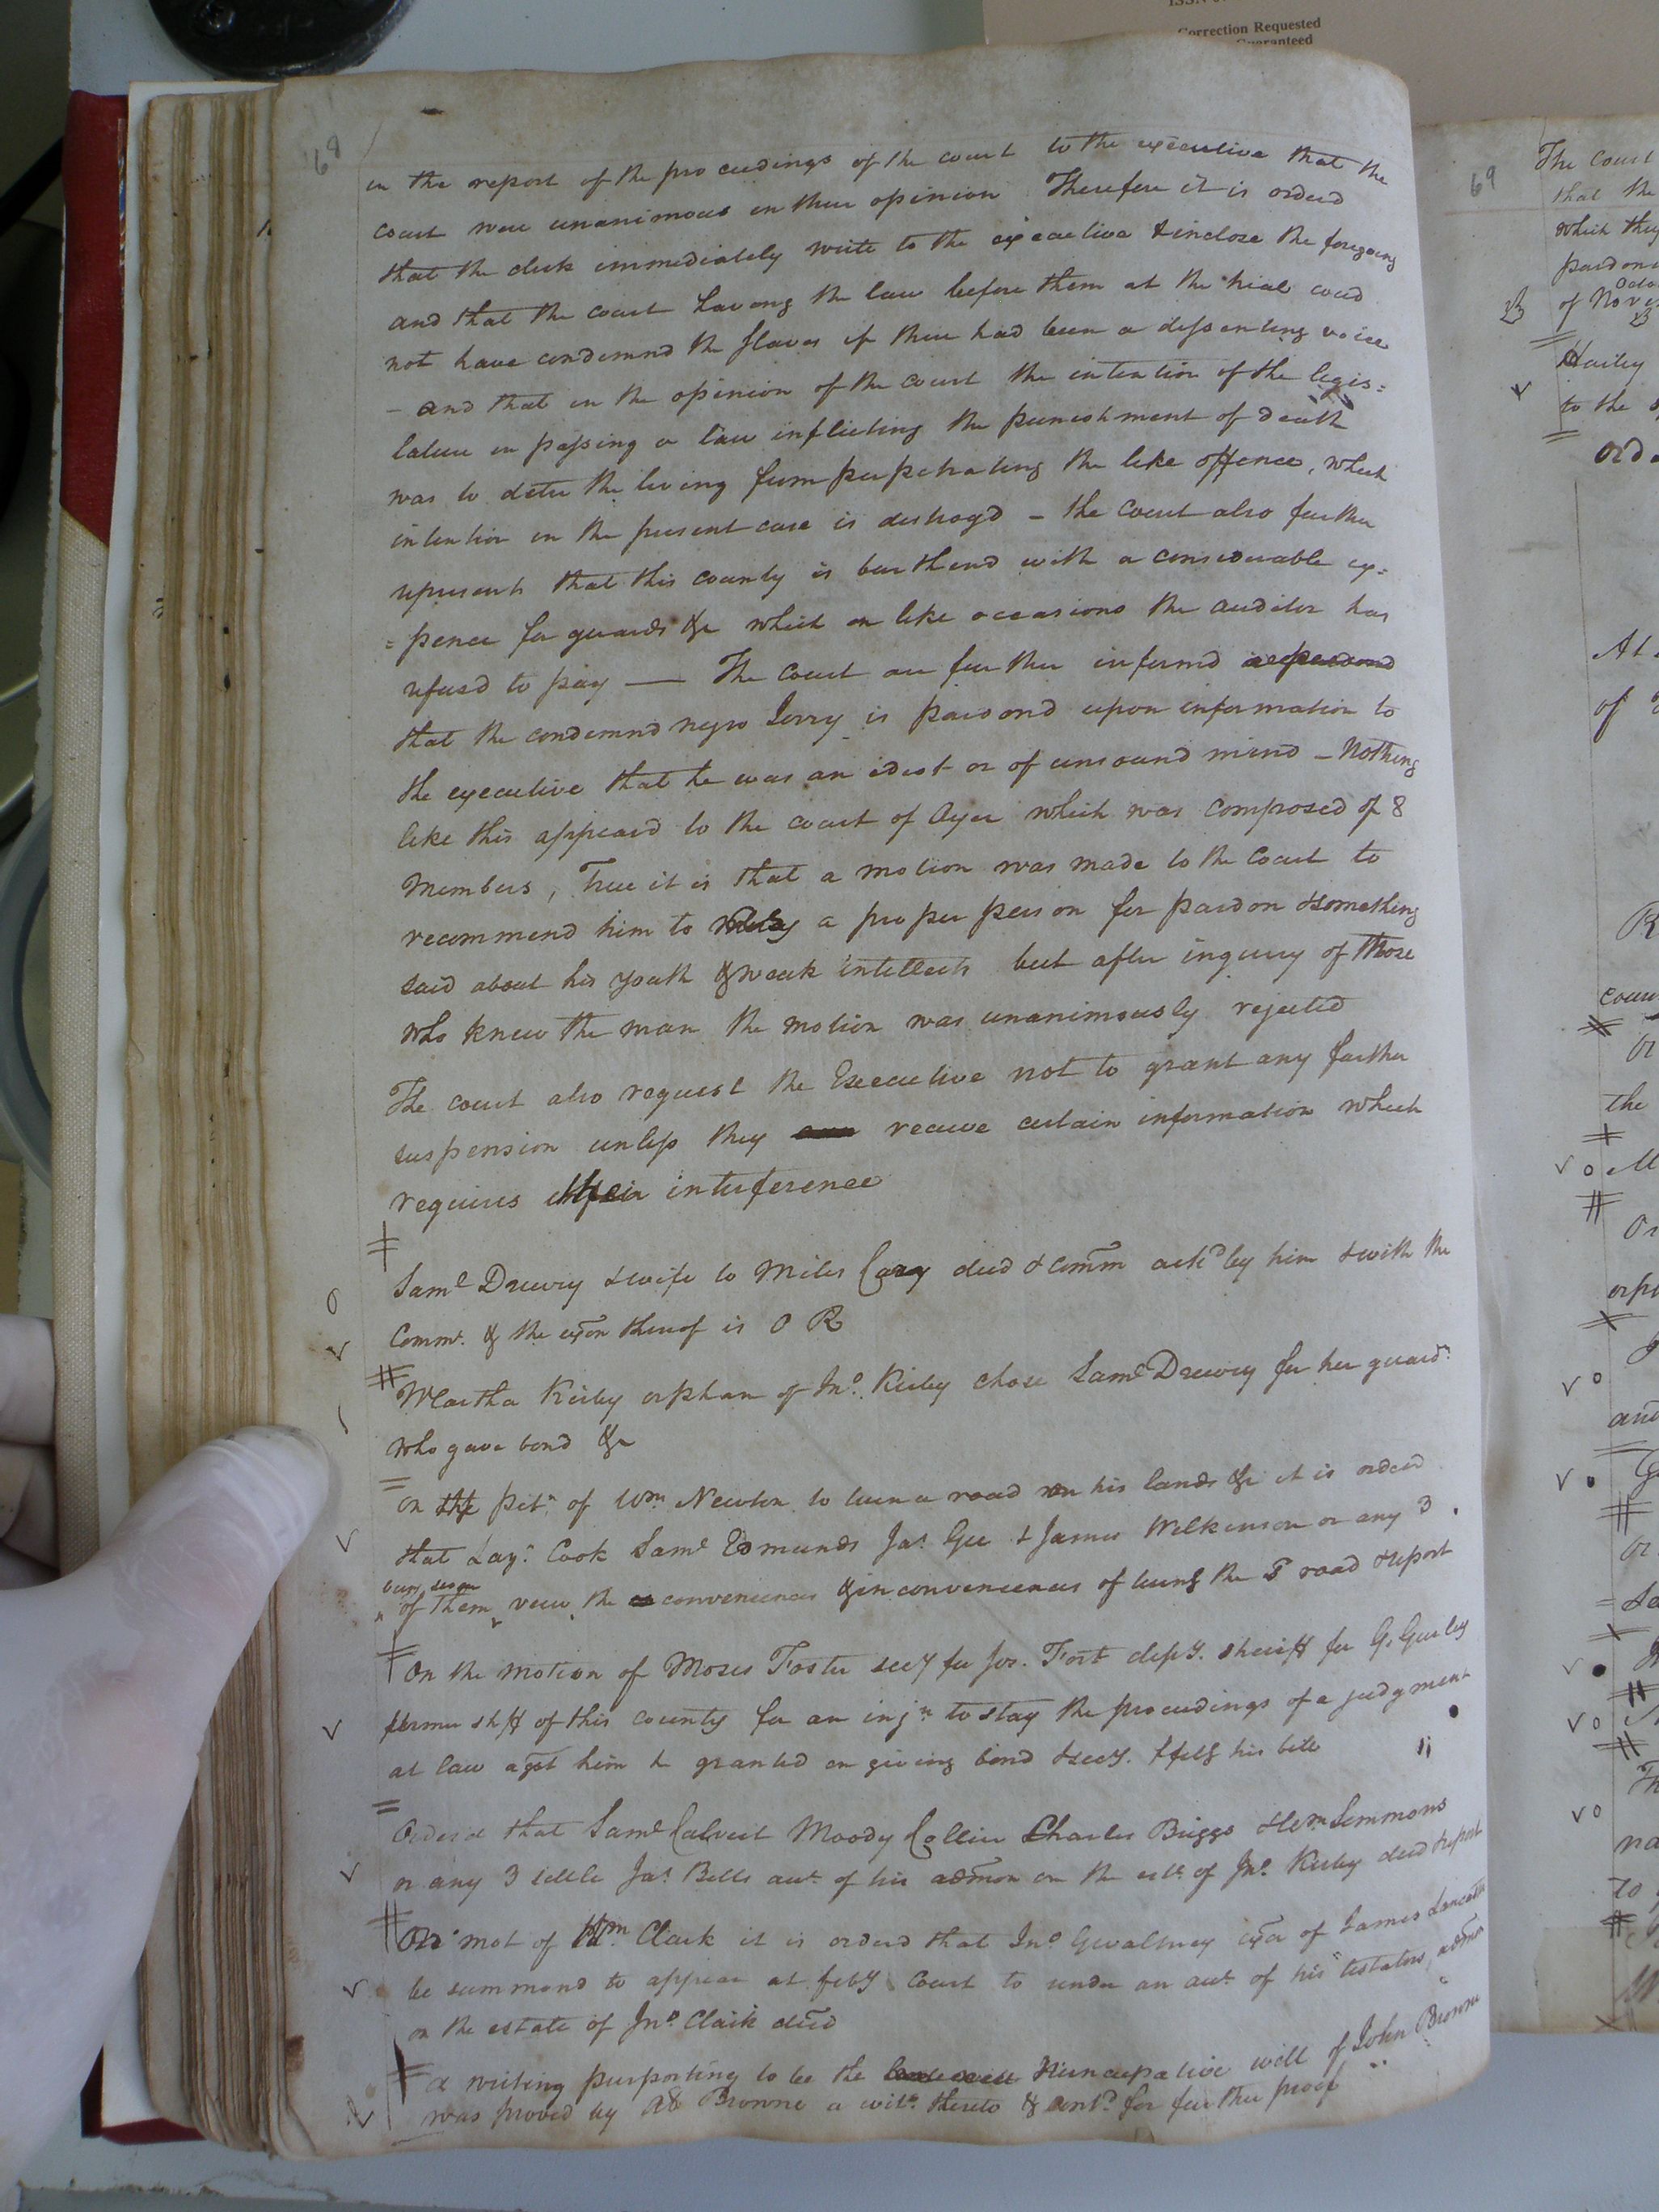 ISSN
Correction Requested
Guaranteed
68
in the report of the proceedings of the court to the executive that the
court were unanimous in their opinion Therefore it is orderd
that the clerk immediately write to the executive & inclose the foregoing
and that the court having the law before them at the trial coud
not have condemnd the slaves if there had been a dissenting voice
- and that in the opinion of the court the intention of the legis=
lature in passing a law inflicting the punishment of death
was to deter the living from perpetrating the like offence, which
intention in the present case is destroyd - the Court also further
represents that this county is burthend with a considerable ex=
=pence for guards &c which on like occasions the auditor has
refusd to pay — The Court are further informd
that the condemnd negro Jerry is pardond upon information to
the executive that he was an ideot or of unsound mind - Nothing
like this appeard to the court of Oyer which was composed of 8
Members, True it is that a motion was made to the Court to
recommend him to a proper person for pardon & something
said about his youth & weak intellects but after inquiry of those
who knew the man the motion was unanimously rejected
The court also request the Executive not to grant any further
suspension unless they receive certain information which
requires their interference
Saml Drewry & wife to Miles Cary deed & comm ackd by him & with the
Commn. & the exon thereof is O R
Martha Kirby orphan of Jno. Kirby chose Saml Drewry for her guardn
who gave bond &c
on the petn of Wm Newton to turn a road on his lands &c it is orderd
that Lazs. Cook Saml Edmunds Jas. Gee & James Wilkinson or any 3
being sworn
of them view the conveniences & inconveniences of turng the sd road & report
On the motion of Moses Foster secy for Jos. Fort depy. sheriff for G. Gurley
former shff of this county for an injn to stay the proceedings of a judgment
at law agst him is granted on giving bond & secy. & filg his bill
Orderd that Saml Calvert Moody Collier Charles Briggs & Wm Simmons
or any 3 settle Jas. Bells acct. of his admon on the este. of Jno. Kirby decd & report
On mot of Wm. Clark it is orderd that Jno Gwaltney exr of James Lancaster
be summond to appear at feby Court to render an acct. of his testators admon
on the estate of Jno. Clark decd
a writing purporting to be the Nuncupative will of John Browne
was proved by Browne a witn. thereto & contd. for further proof
69
The Court
that the
which they
pardon
of Nov
Hailey
to the
Ord
At
of
the
and